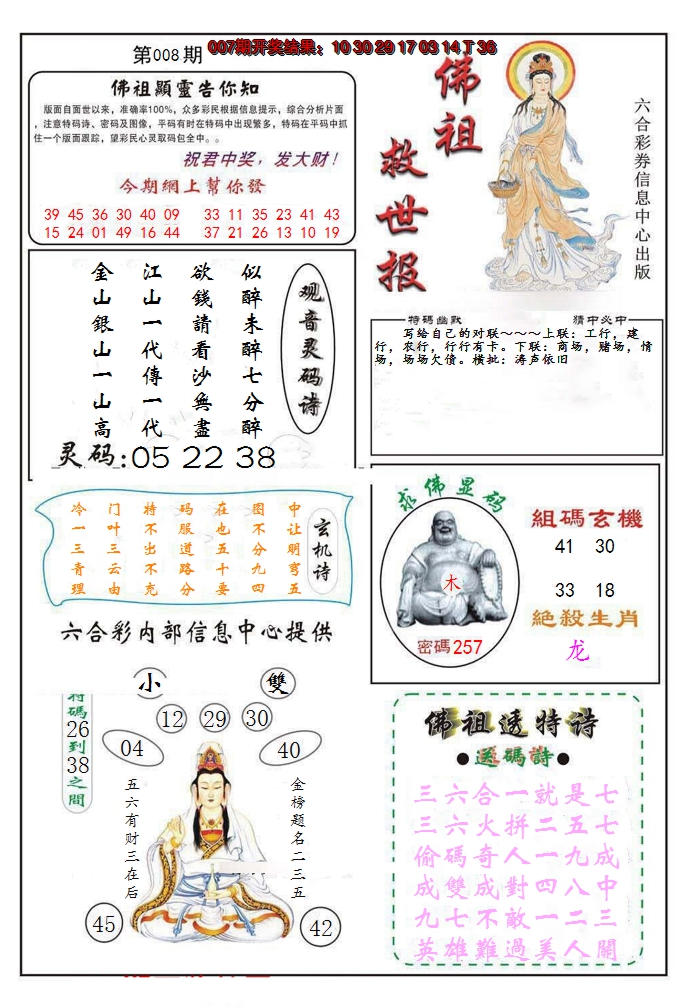 007期开奖结果：10 30 29 17 03 14 丁 36
第008期
佛祖顯靈告你知
版面自面世以来，准确率100%，众多彩民根据信息提示，综合分析片面
，注意特码诗、密码及图像，平码有时在特码中出现繁多，特码在平码中抓
住一个版面跟踪，望彩民心灵取码包全中。。
祝君中奖，发大财！
今期網上幫你發
39 45 36 30 40 09 33 11 35 23 41 43
15 24 01 49 16 44 37 21 26 13 10 19
佛祖救世报
六合彩券信息中心出版
观音灵码诗
似醉未醉七分醉
欲錢請看沙無盡
江山一代傳一代
金山銀山一山高
灵码:05 22 38
特碼幽默
猜中必中
写给自己的对联～～～上联：工行，建
行，农行，行行有卡。下联：商场，赌场，情
场，场场欠债。横批：涛声依旧
玄机诗
中让明弯五
图不分九四
在也五十要
码服道路分
特不出不充
门叶三云由
冷一三青理
六合彩内部信息中心提供
求佛显码
木
密碼257
組碼玄機
41 30
33 18
絕殺生肖
龙
小
雙
特碼26到38之間
12 29 30
04 40
五六有财三在后
金榜题名二三五
45 42
佛祖透特诗
●送碼詩●
三六合一就是七
三六火拼二五七
偷碼奇人一九成
成雙成對四八中
九七不敵一二三
英雄難過美人關